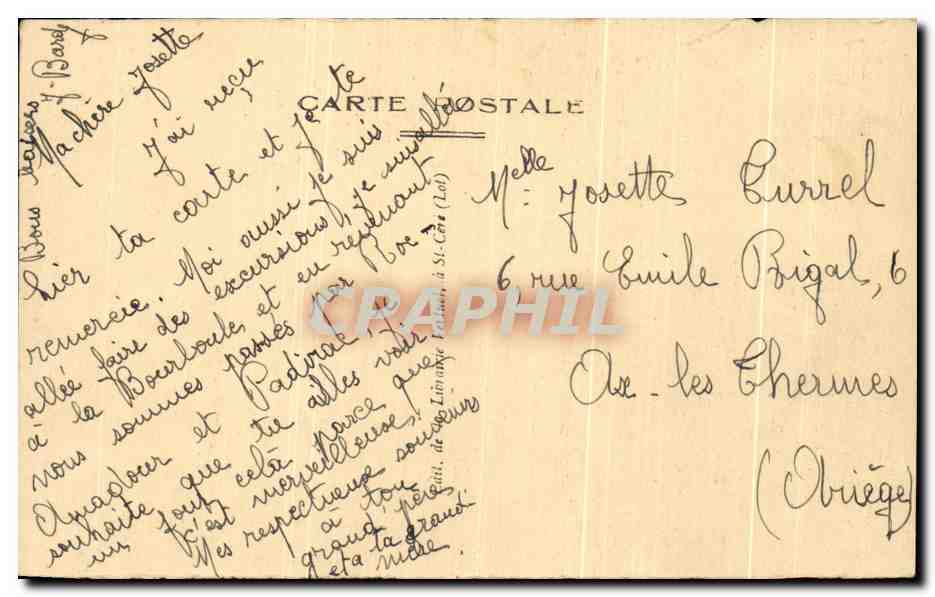 CARTE POSTALE
Ma chère Josette
J'ai reçu
hier ta carte et je te
remercie. Moi aussi je suis
allée faire des excursions, je suis allée
à la Bourboule, et en revenant
nous sommes passés par Roc-
Amadour et Padirac. Je
souhaite que tu ailles voir
un jour celà parce que
c'est merveilleuse.
Mes respectueux souvenirs
à ton
grand'père
et a ta grand
mère.
Bons baisers J. Bard
Melle Josette Turrel
6, rue Emile Bigal, 6
Ax-les Thermes
(Ariège)
Librairie à St-Céré (Lot)
CPAPHIL